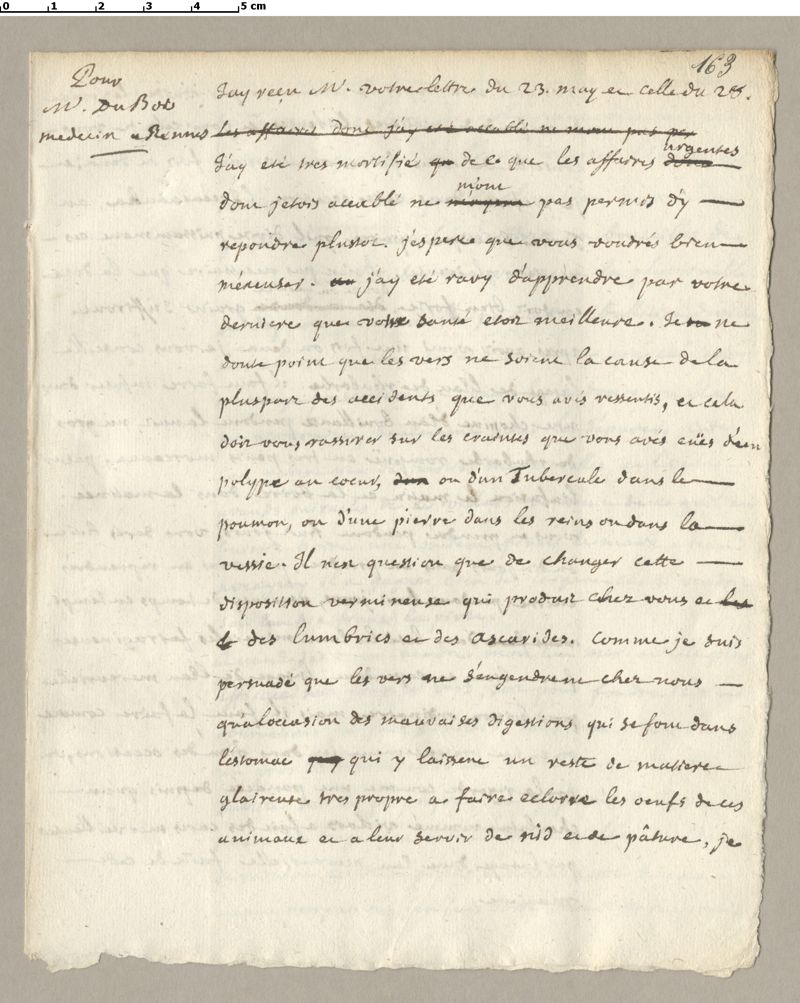 0 1 2 3 4 5 cm
163
Pour
Mr. Du Bois
medecin a Rennes
J'ay reçu Mr. votre lettre du 23. may et celle du 28.
les affaires dont j'ay eté accablé ne m'ont pas per
urgentes
J'ay eté tres mortifié de ce que les affaires dont
m'ont
dont jetois accablé ne pas permis d'y
repondre plustot. j'espere que vous voudrés bien
m'excuser. j'ay eté ravy d'apprendre par votre
derniere que votre santé etoit meilleure. Je ne
doute point que les vers ne soient la cause de la
pluspart des accidents que vous avés ressentis, et cela
doit vous rassurer sur les craintes que vous avés eües d'un
polype au coeur, d'un ou d'un Tubercule dans le
poumon, ou d'une pierre dans les reins ou dans la
vessie. Il n'est question que de changer cette
disposition vermineuse qui produit chez vous et les
des lumbrics et des ascarides. Comme je suis
persuadé que les vers ne s'engendrent chez nous
qu'a loccasion des mauvaises digestions qui se font dans
l'estomac qui y laissent un reste de matiere
glaireuse tres propre a faire eclorre les oeufs de ces
animaux et a leur servir de nid et de pâture, je